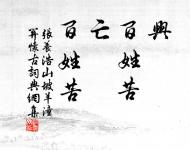 興
百姓苦
亡
百姓苦
張養浩山坡羊潼
關懷古詞典網集